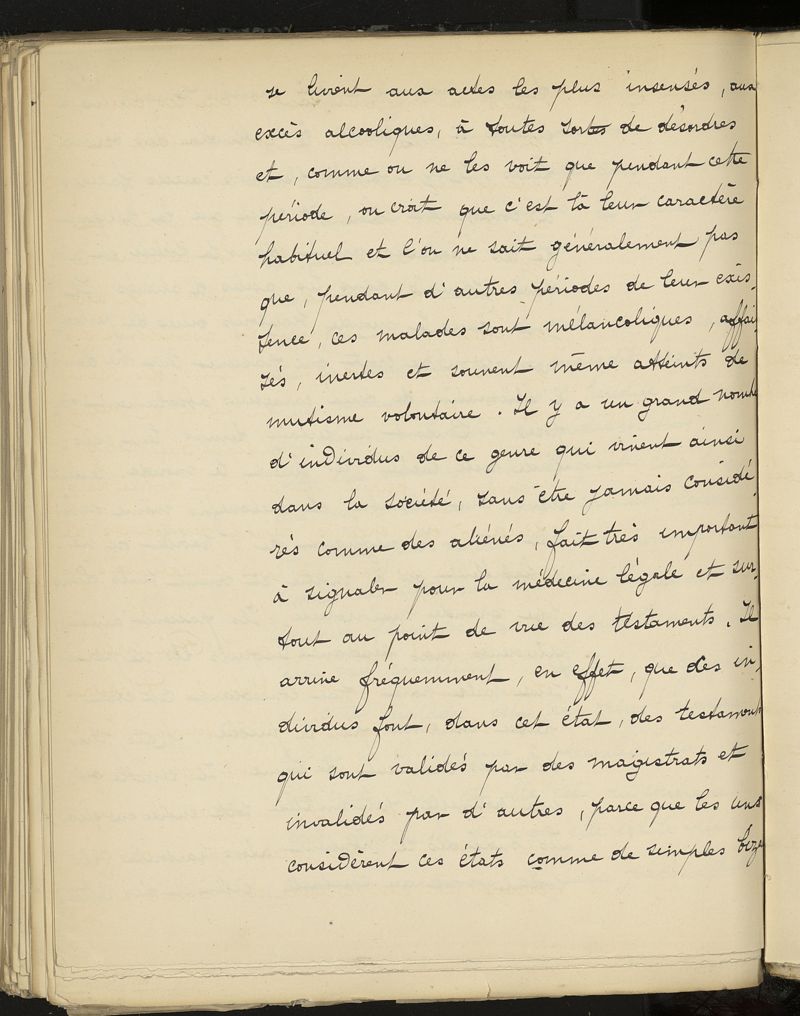 se livrent aux actes les plus insensés, aux
excès alcooliques, à toutes sortes de désordres
et, comme on ne les voit que pendant cette
période, on croit que c'est là leur caractère
habituel et l'on ne sait généralement pas
que, pendant d'autres périodes de leur exis-
tence, ces malades sont mélancoliques, affai
sés, inertes et souvent même atteints de
mutisme volontaire. Il y a un grand nomb
d'individus de ce genre qui vivent ainsi
dans la société, sans être jamais considé-
rés comme des aliénés, fait très important
à signaler pour la médecine légale et sur-
tout au point de vue des testaments. Il
arrive fréquemment, en effet, que des in-
dividus font, dans cet état, des testaments
qui sont validés par des magistrats et
invalidés par d'autres, parce que les uns
considèrent ces états comme de simples biza